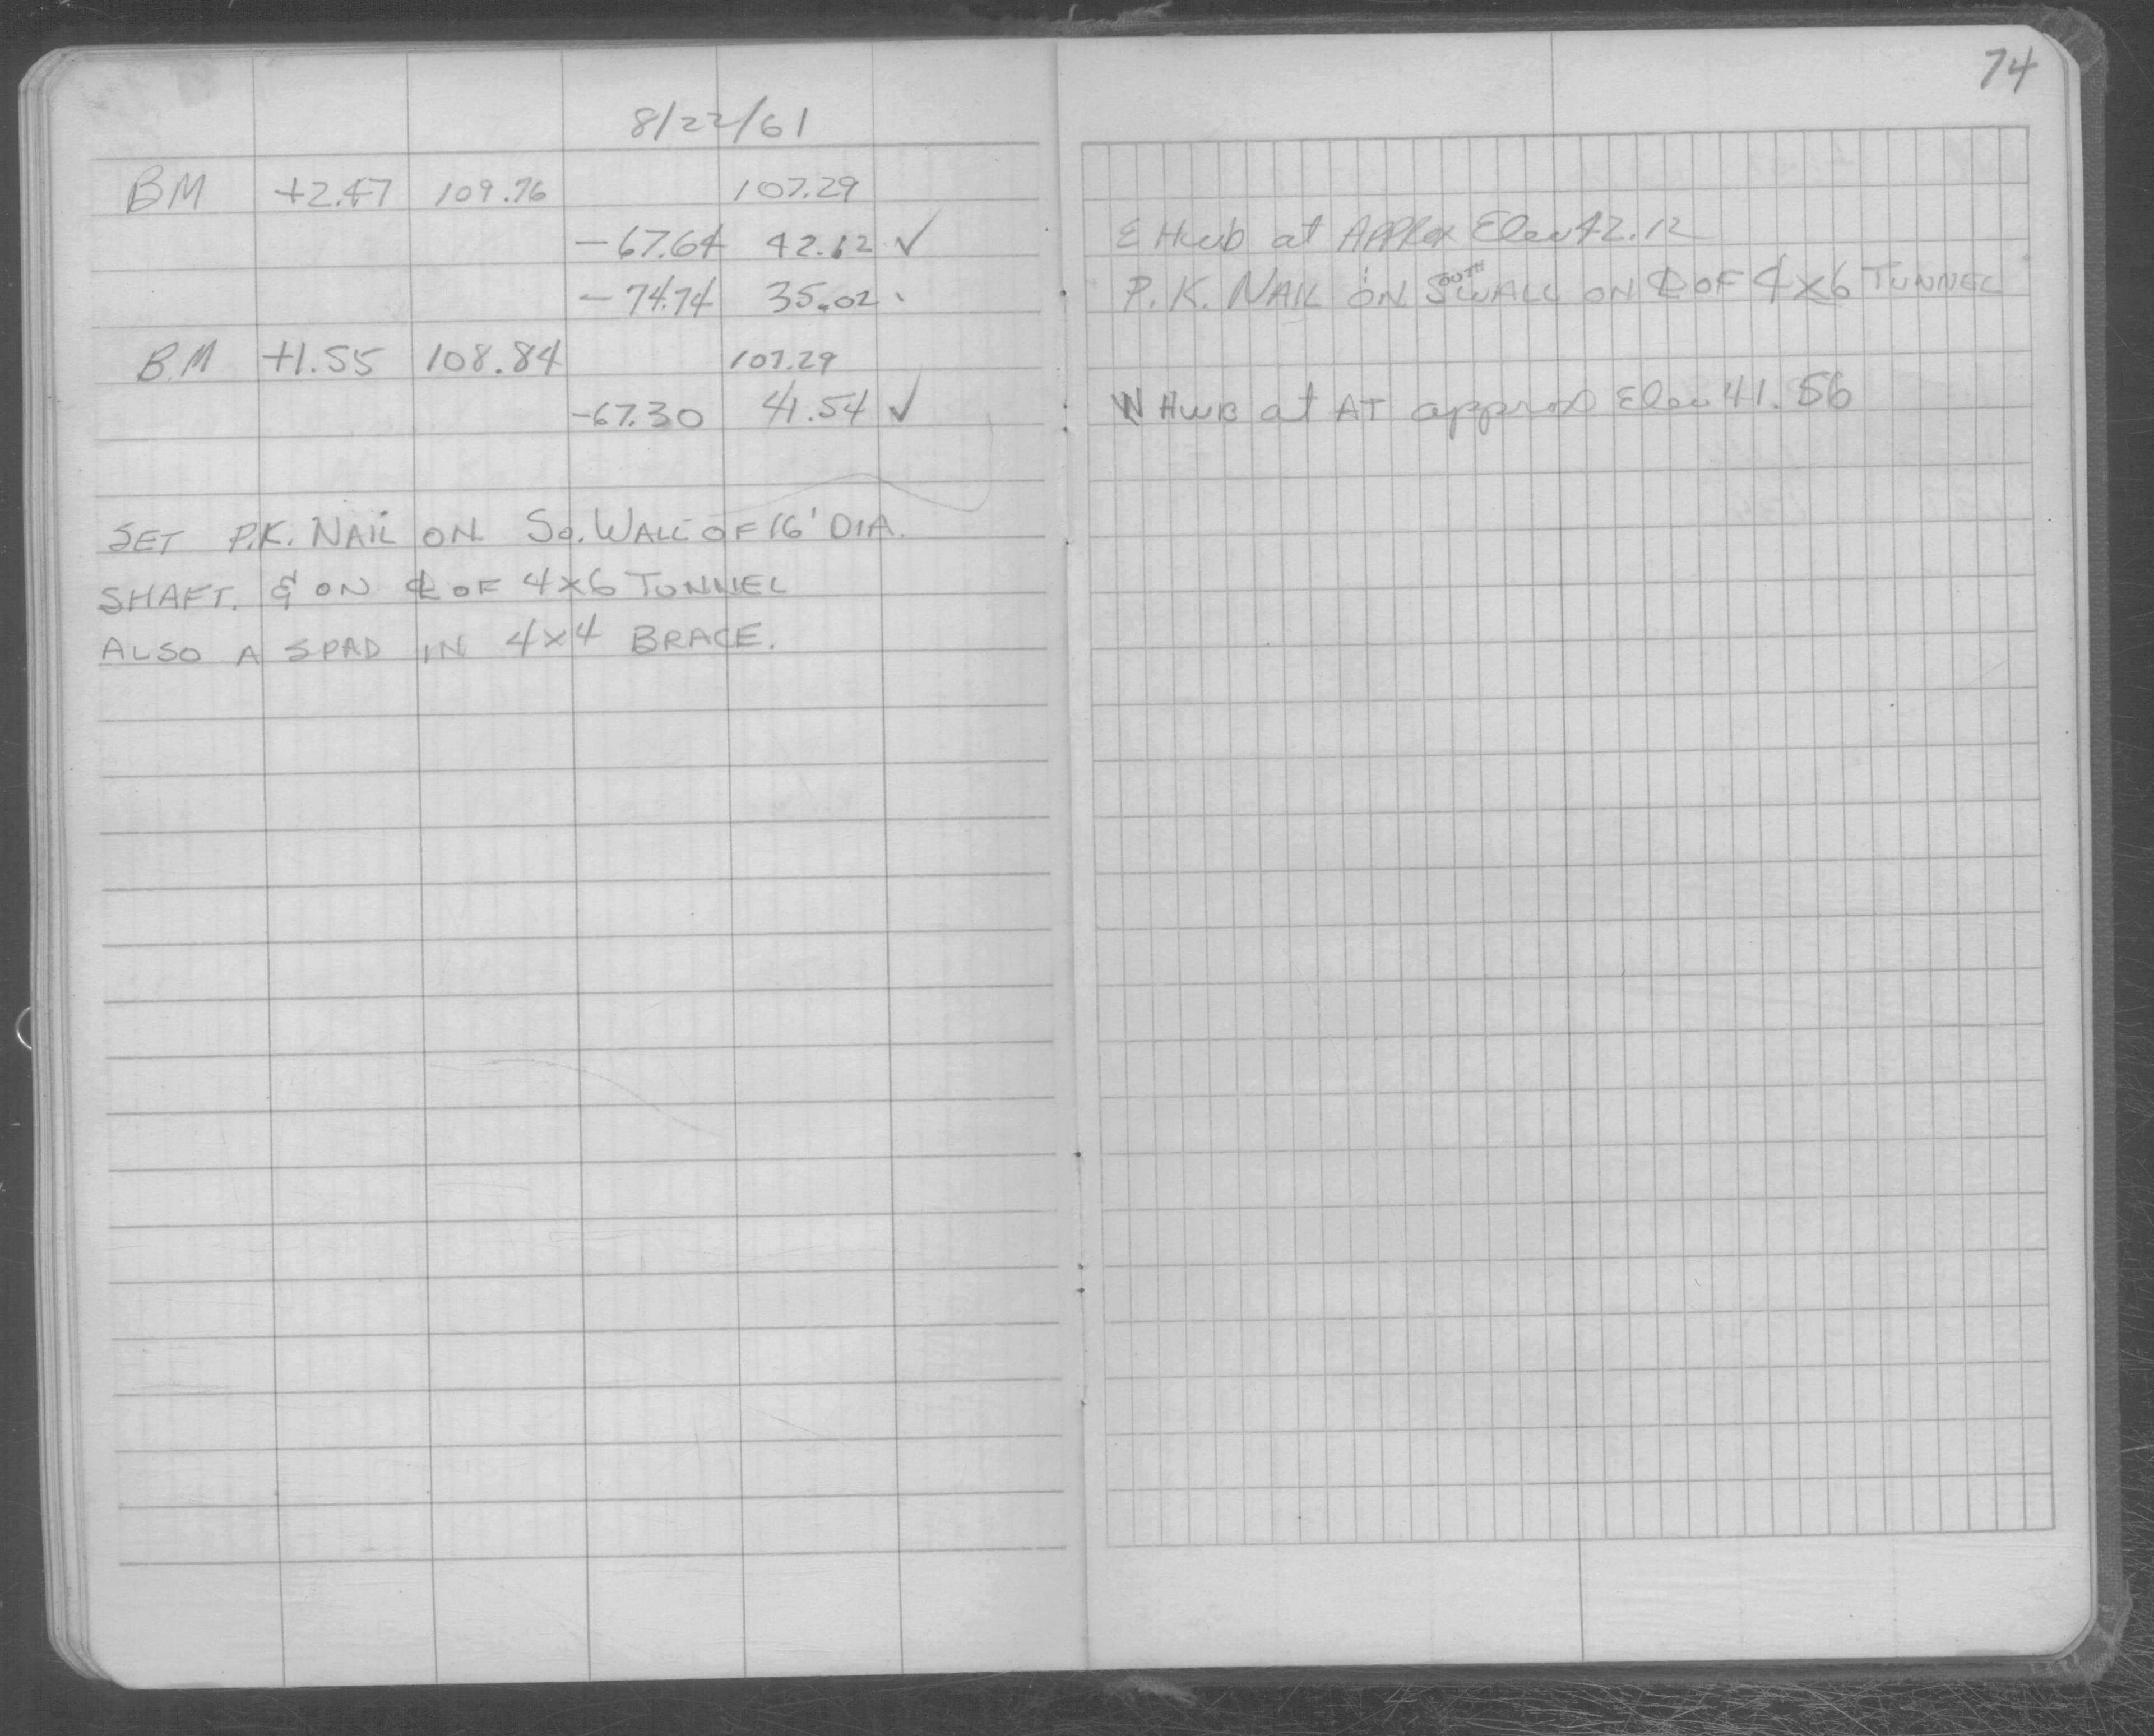 74
8/22/61
BM +2.47 109.76 107.29
-67.64 42.12 ✓ E Hub at Approx Elev 42.12
-74.74 35.02 P.K. NAIL ON SOUTH WALL ON ℄ OF 4x6 TUNNEL
B.M +1.55 108.84 107.29
-67.30 41.54 ✓ N HUB at AT approx Elev 41.56
SET P.K. NAIL ON So. WALL OF 16' DIA.
SHAFT. & ON ℄ OF 4x6 TUNNEL
ALSO A SPAD IN 4x4 BRACE.